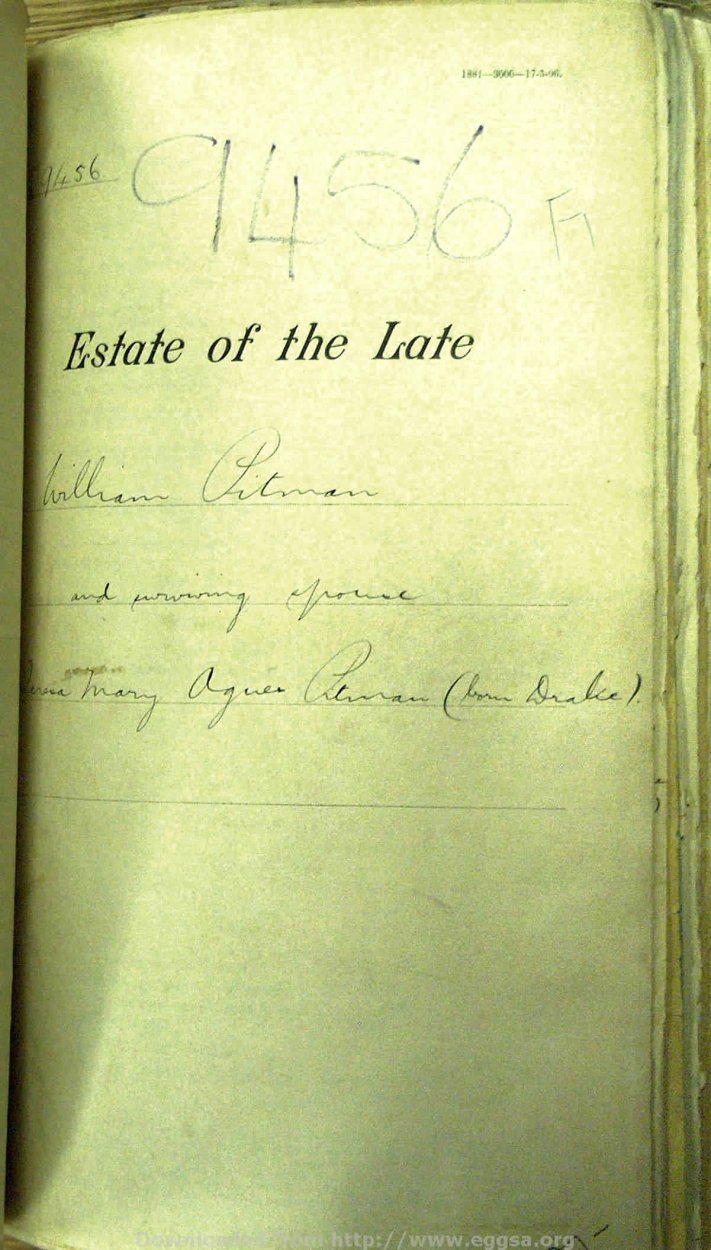 1881—3000—17-3-06.
9456
9456 F1
Estate of the Late
William Pitman
and surviving spouse
Mary Agnes Pitman (born Drake).
Downloaded from http://www.eggsa.org